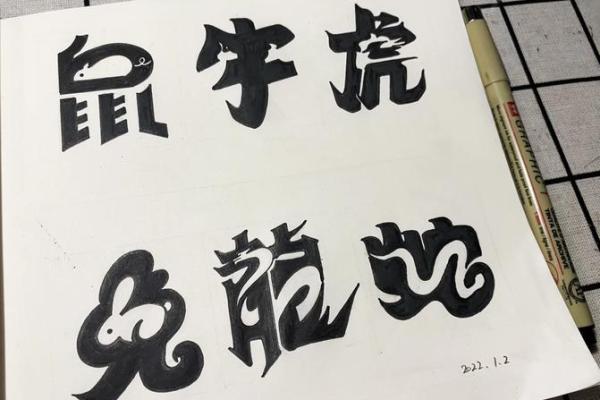 鼠牛虎
兔龍蛇
2022.1.2
GRAPHIC 1